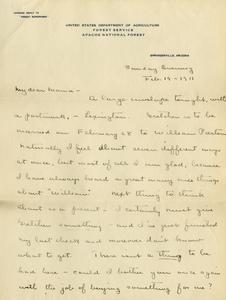 ADDRESS REPLY TO
"FOREST SUPERVISOR"
UNITED STATES DEPARTMENT OF AGRICULTURE
FOREST SERVICE
APACHE NATIONAL FOREST
SPRINGERVILLE, ARIZONA
Sunday Evening
Feb. 19 - 1911
My dear Mama -
A large envelope tonight, with
a postmark, - Lexington. Gretchen is to be
married on February 28 to William
Naturally I feel about seven different ways
at once, but most of all I am glad, because
I have always heard a great many nice things
about "William". Next thing to think
about is a present - I certainly must give
Gretchen something - and I've just
my last check and moreover don't know
what to get. There isn't a thing to be
had here - could I bother you once again
with the job of buying something for me?